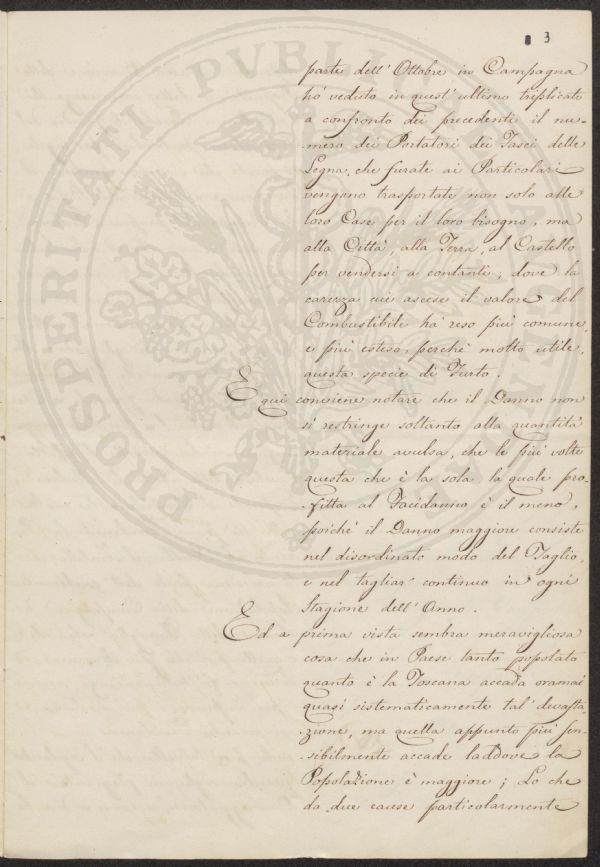 3
parte dell' Ottobre in Campagna
hò veduto in quest' ultimo triplicato
a confronto dei precedenti il nu-
-mero dei Portatori dei Fasci delle
Legna, che furate ai Particolari
vengono trasportate non solo alle
loro Case per il loro bisogno, ma
alla Città, alla Terra, al Castello
per vendersi a contanti; dove la
carezza cui ascese il valore del
Combustibile hà reso più comune,
e più esteso, perchè molto utile,
questa specie di Furto.
E quì conviene notare che il Danno non
si restringe soltanto alla quantità
materiale avulsa, che le più volte
questa che è la sola la quale pro-
-fitta al Facidanno è il meno,
poichè il Danno maggiore consiste
nel disordinato modo del Taglio,
e nel tagliar' continuo in ogni
Stagione dell' Anno.
Ed a prima vista sembra meravigliosa
cosa che in Paese tanto popolato
quanto è la Toscana accada oramai
quasi sistematicamente tal' devasta-
-zione, ma quella appunto più sen-
-sibilmente accade laddove la
Popolazione è maggiore; Lo che
da due cause particolarmente
PROSPERITATI PVBLI